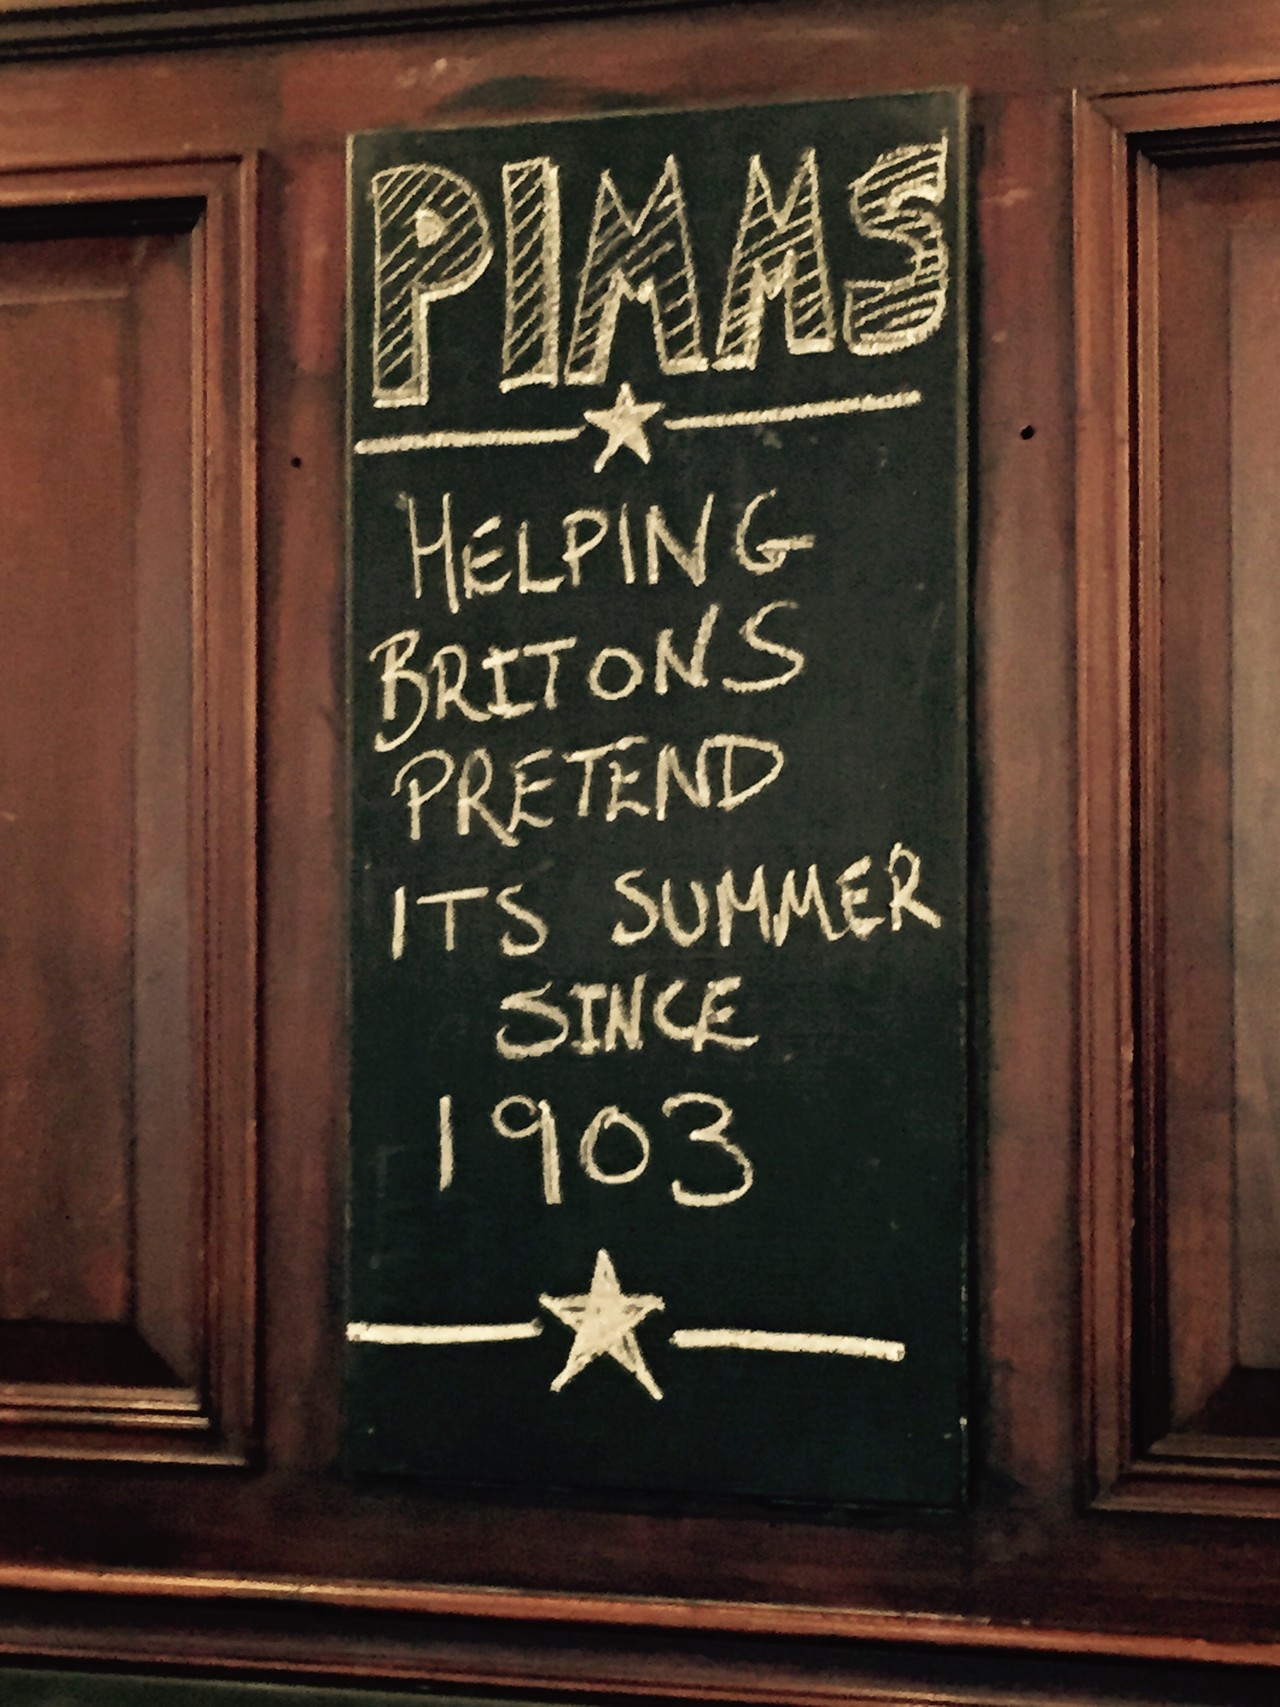 PIMMS
HELPING
BRITONS
PRETEND
ITS SUMMER
SINCE
1903